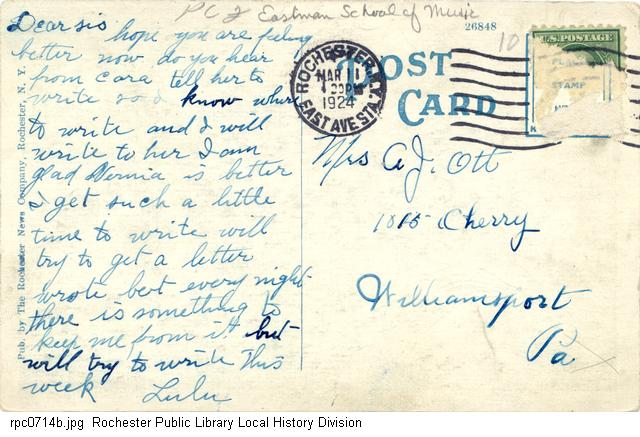 PC 2 Eastman School of Music
26848
10
POST CARD
U.S. POSTAGE
PLACE
STAMP
ROCHESTER, N.Y.
MAR 1
30PM
1924
EAST AVE STA.
Dear sis
hope you are feeling
better now do you hear
from Cara tell her to
write so I know where
to write and I will
write to her I am
glad is better
I get such a little
time to write will
try to get a letter
wrote but every night
there is something to
keep me from it but
will try to write this
week Lulu
Mrs A J. Ott
1015 Cherry
Williamsport
Pa
Pub. by The Rochester News Company, Rochester, N. Y.
rpc0714b.jpg Rochester Public Library Local History Division